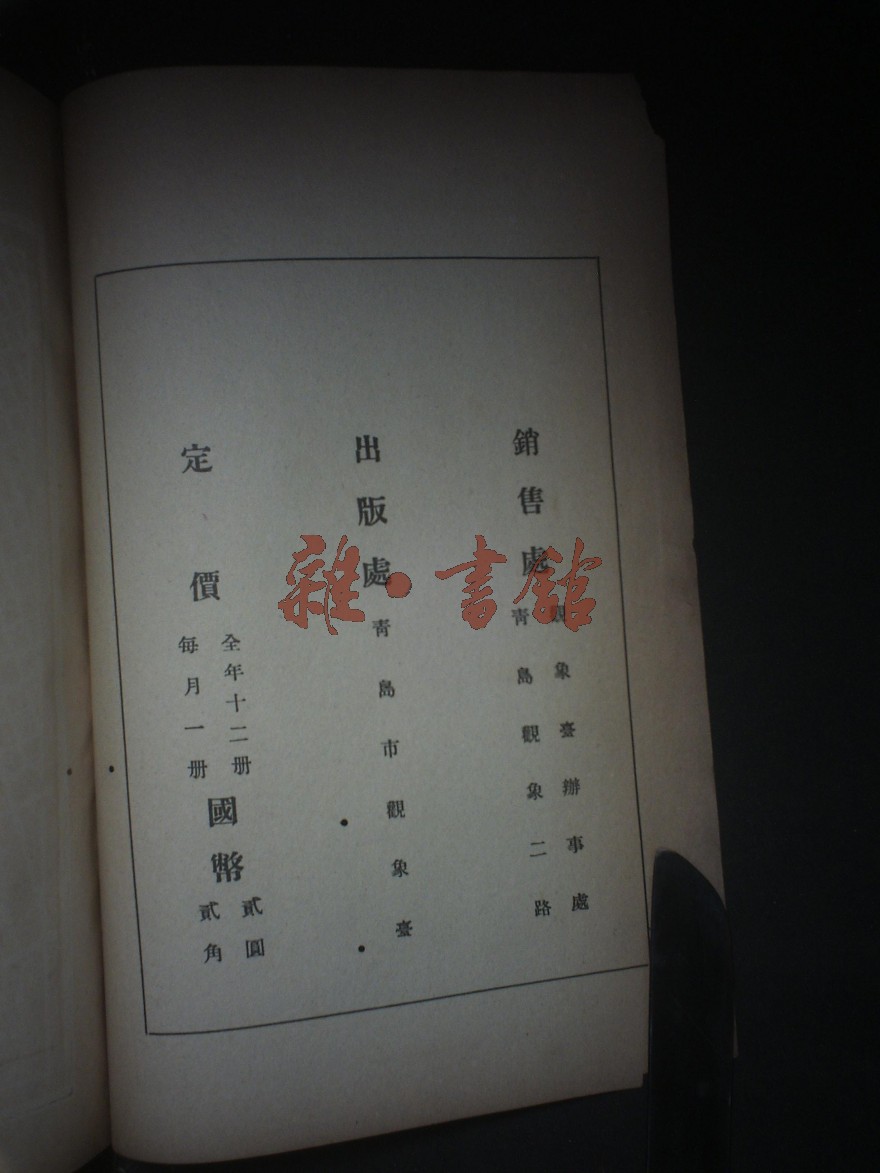 銷售處
觀象臺辦事處
青島觀象二路
出版處
靑島市觀象臺
定價
全年十二册
每月一册
國幣
貳圓
貳角
雜·書館